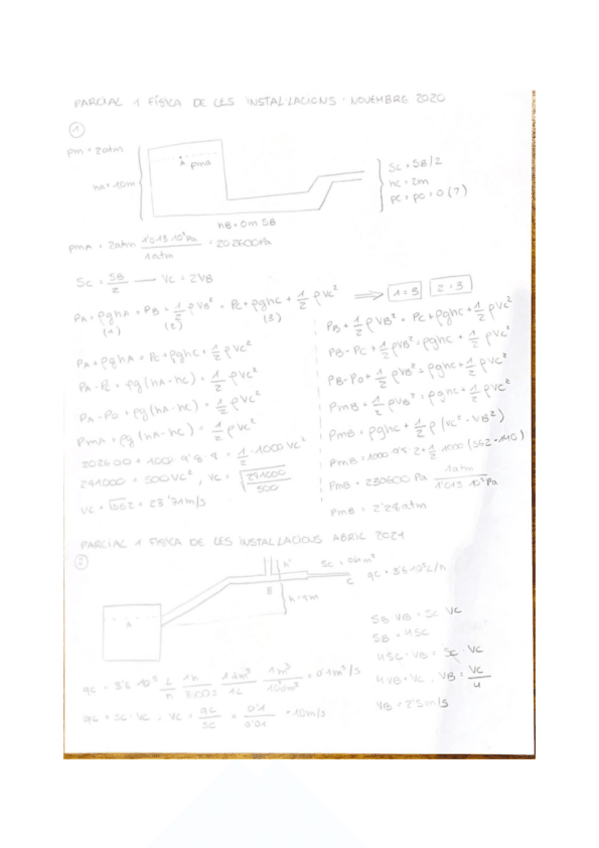 PARCIAL 1 FÍSICA DE LES INSTAL·LACIONS · NOVEMBRE 2020
1
pm = 2atm
A pma
hA = 10m
hB = 0m SB
Sc = SB/2
hc = 2m
pc = po = 0 (?)
pmA = 2atm 1'013·10⁵Pa / 1atm = 202600Pa
Sc = SB/2 — Vc = 2VB
PA + ρghA = PB + 1/2 ρVB² = Pc + ρghc + 1/2 ρVc² ⟹ 1=3 2=3
(1) (2) (3)
PA + ρghA = Pc + ρghc + 1/2 ρVc²
PA - Pc + ρg(hA - hc) = 1/2 ρVc²
PA - Po + ρg(hA - hc) = 1/2 ρVc²
PmA + ρg(hA - hc) = 1/2 ρVc²
202600 + 1000·9'8·8 = 1/2·1000Vc²
281000 = 500Vc², Vc = √281000/500
Vc = √562 = 23'71m/s
PB + 1/2 ρVB² = Pc + ρghc + 1/2 ρVc²
PB - Pc + 1/2 ρVB² = ρghc + 1/2 ρVc²
PB - Po + 1/2 ρVB² = ρghc + 1/2 ρVc²
PmB + 1/2 ρVB² = ρghc + 1/2 ρVc²
PmB = ρghc + 1/2 ρ(Vc² - VB²)
PmB = 1000·9'8·2 + 1/2 1000(562 - 140)
PmB = 230600 Pa 1atm / 1'013·10⁵Pa
PmB = 2'28atm
PARCIAL 1 FÍSICA DE LES INSTAL·LACIONS ABRIL 2021
2
h'
Sc = 0'01m²
qc = 3'6·10⁵L/h
B
C
A
SB VB = Sc Vc
SB = 4Sc
4Sc·VB = Sc·Vc
4VB = Vc, VB = Vc/4
VB = 2'5m/s
qc = 3'6·10⁵ L/h 1h/3600s 1dm³/1L 1m³/10³dm³ = 0'1m³/s
qc = Sc·Vc, Vc = qc/Sc = 0'1/0'01 = 10m/s